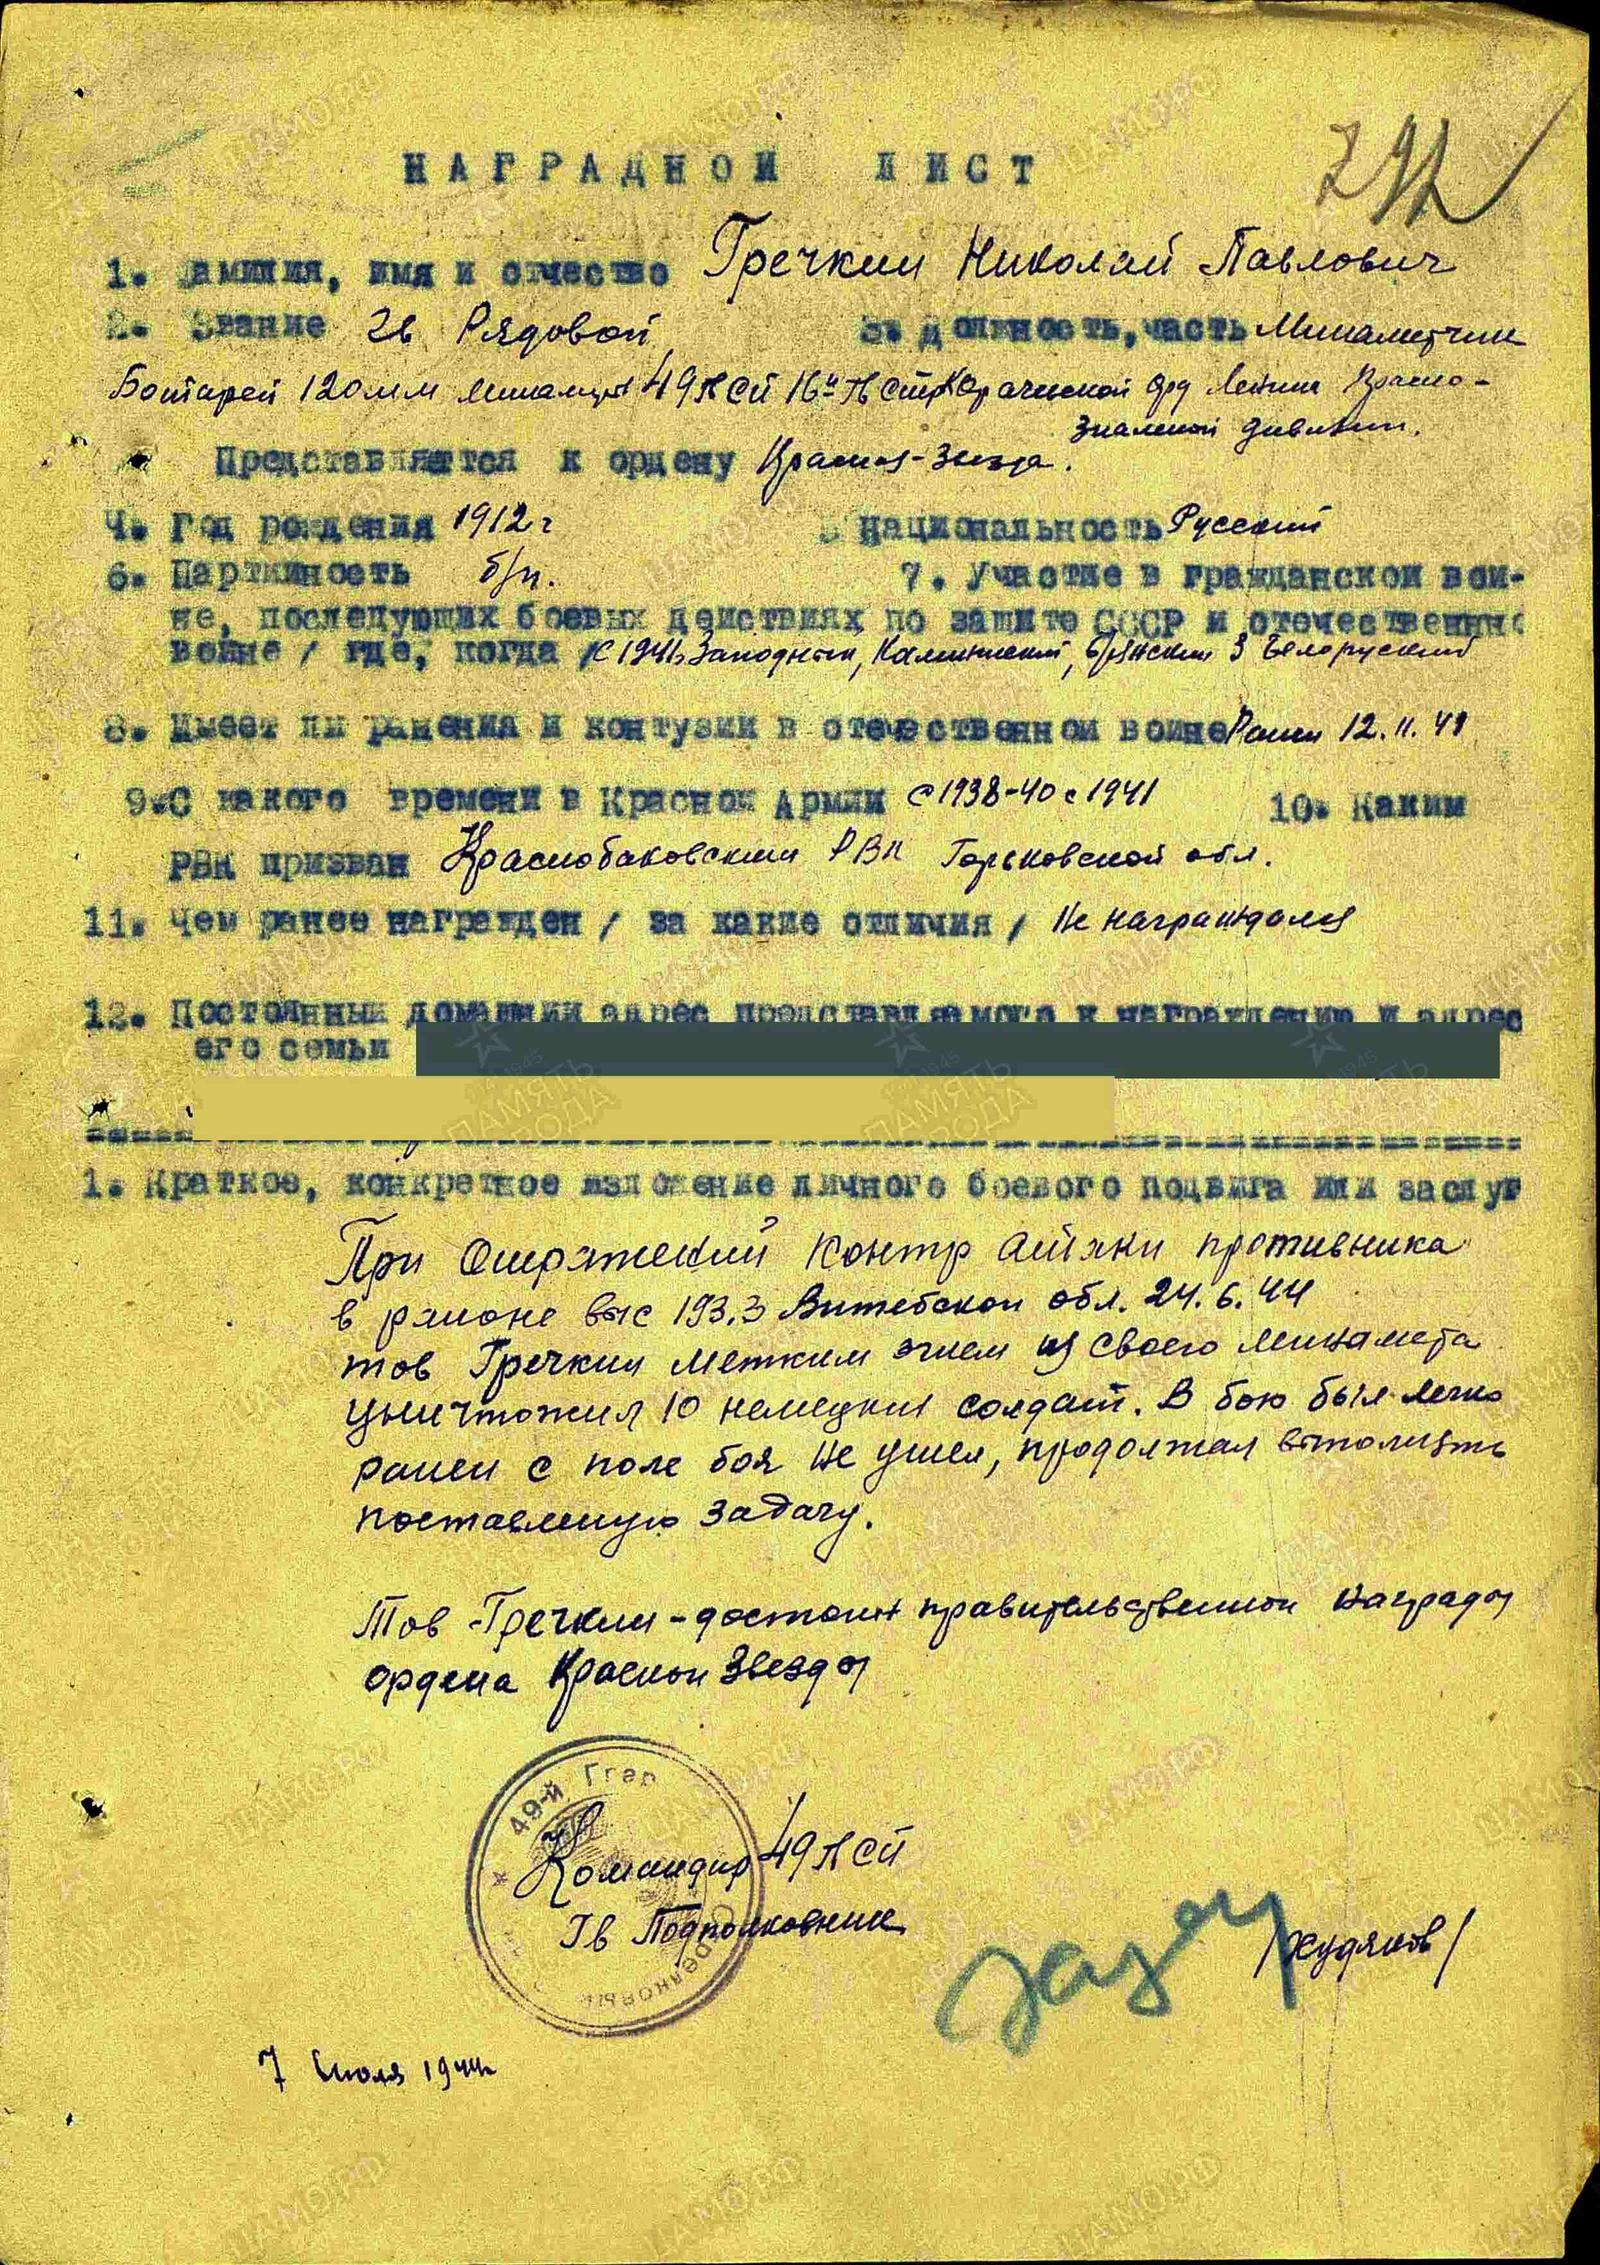 792
НАГРАДНОЙ ЛИСТ
1. Фамилия, имя и отчество Гречкин Николай Павлович
2. Звание Гв Рядовой 3. Должность, часть Минаметчик
Батареи 120 мм минамцт 49 ГвСП 16й Гв Стр Карачевской Орд Ленина Красно-
Знаменой дивизии.
Представляется к ордену Красная-Звезда.
4. Год рождения 1912 г 5 Национальность Русский
6. Партийность б/п. 7. Участие в гражданской вой-
не, последующих боевых действиях по защите СССР и отечественно
войне / где, когда / с 1941г Западный, Калининский, Брянский 3 Белоруский
8. Имеет ли ранения и контузии в отечественной войне Ранен 12.11.41
9. С какого времени в Красной Армии с 1938-40 с 1941 10. Каким
РВК призван Краснобаковским РВК Горьковской обл.
11. Чем ранее награжден / за какие отличия / Не награждался
12. Постоянный домашний адрес представляемого к награждению и адрес
его семьи
1. Краткое, конкретное изложение личного боевого подвига или заслуг
При Отражений контр атаки противника
в районе выс 193,3 Витебской обл. 24.6.44
тов Гречкин метким огнем из своего минамета
уничтожил 10 немецких солдат. В бою был легко
ранен с поле боя не ушел, продолжал выполнять
поставленую задачу.
Тов-Гречкин-достоин правительственной награды
ордена Красной Звезды
49-й Гвар
Командир 49 ГвСП
Гв Подполковник
/Худяков/
7 Июля 1944г